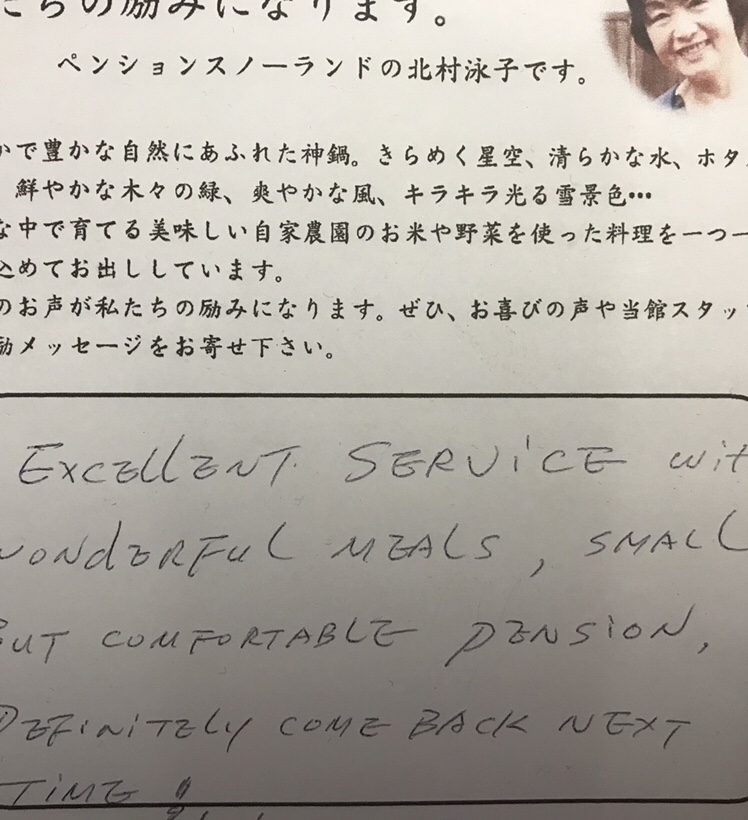 たちの励みになります。
ペンションスノーランドの北村泳子です。
かで豊かな自然にあふれた神鍋。きらめく星空、清らかな水、ホタ
鮮やかな木々の緑、爽やかな風、キラキラ光る雪景色…
な中で育てる美味しい自家農園のお米や野菜を使った料理を一つ一
込めてお出ししています。
のお声が私たちの励みになります。ぜひ、お喜びの声や当館スタッ
励メッセージをお寄せ下さい。
EXCELLENT SERVICE wit
WONDERFUL MEALS, SMALL
BUT COMFORTABLE PENSION,
DEFINITELY COME BACK NEXT
TIME !